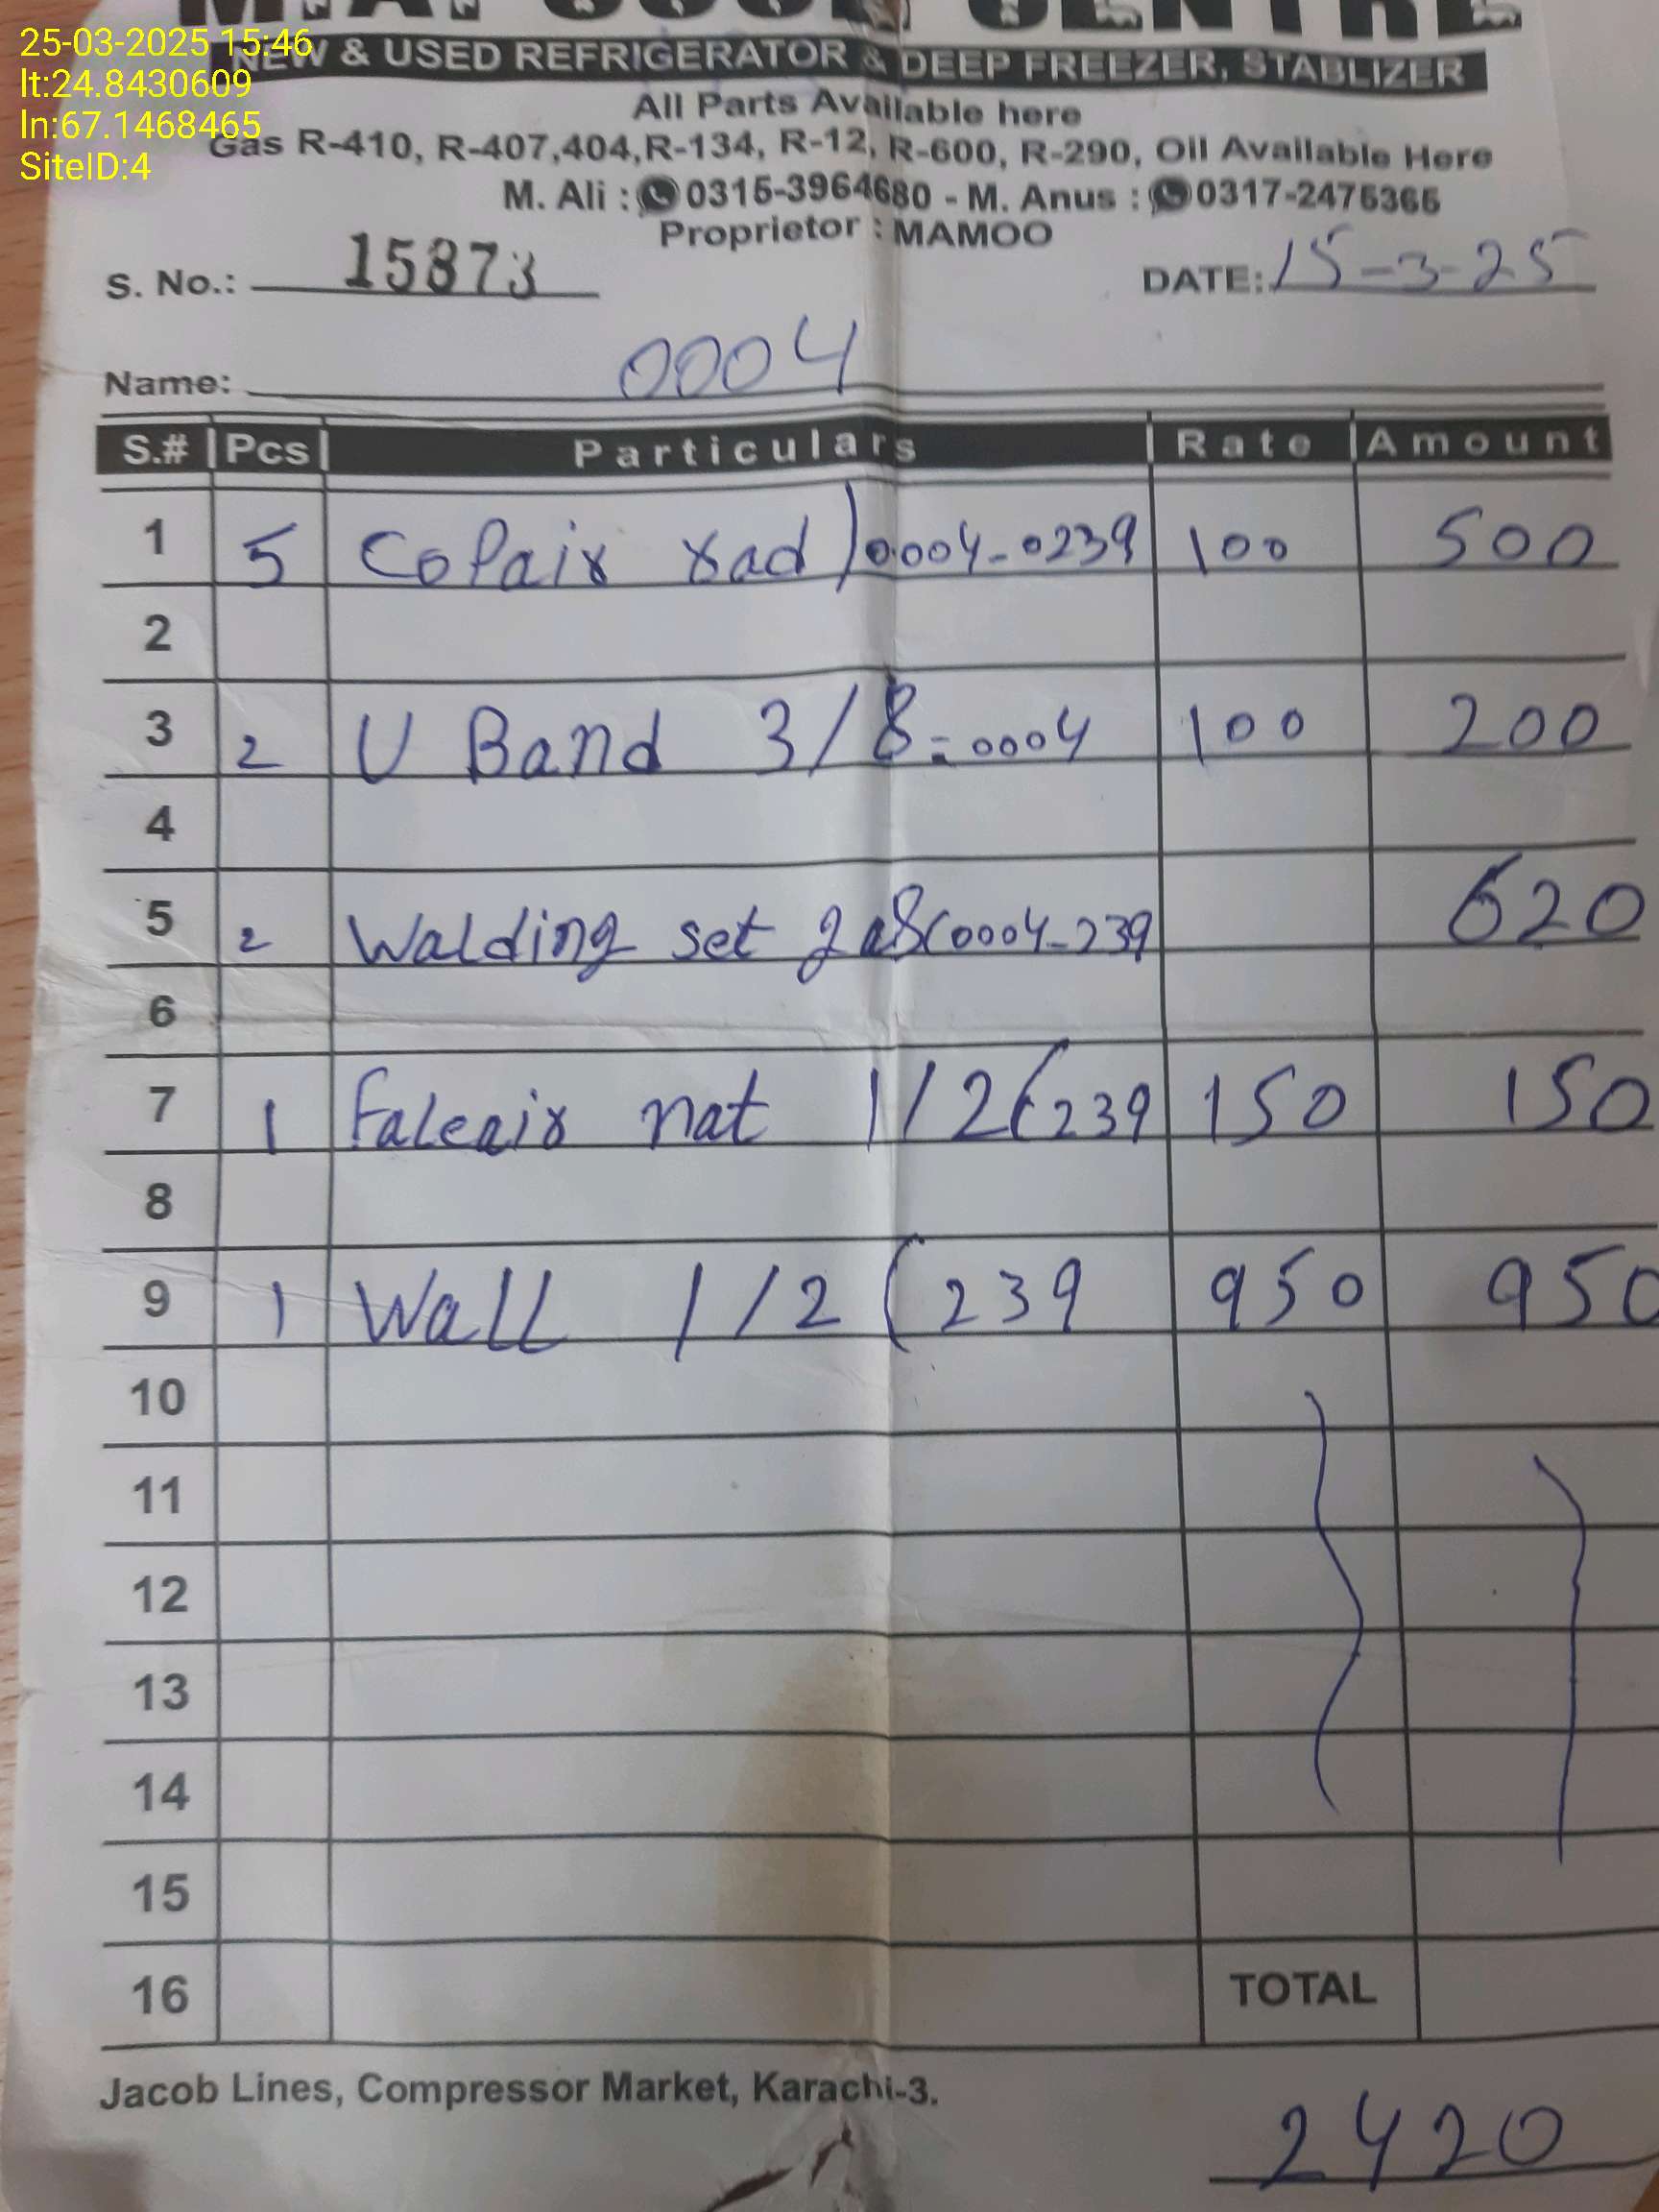 25-03-2025 15:46
lt:24.8430609
ln:67.1468465
SiteID:4
COOL CENTRE
NEW & USED REFRIGERATOR & DEEP FREEZER, STABLIZER
All Parts Available here
Gas R-410, R-407,404,R-134, R-12, R-600, R-290, Oil Available Here
M. Ali : 0315-3964680 - M. Anus : 0317-2475365
Proprietor : MAMOO
S. No.: 15873 DATE: 15-3-25
Name: 0004
S.# Pcs Particulars Rate Amount
1 5 Copair rad )0004-0239 100 500
2
3 2 U Band 3/8=0004 100 200
4
5 2 Walding set gas(0004-239 620
6
7 1 Faleair nat 1/2(239 150 150
8
9 1 Wall 1/2 (239 950 950
10
11
12
13
14
15
16 TOTAL
Jacob Lines, Compressor Market, Karachi-3.
2420